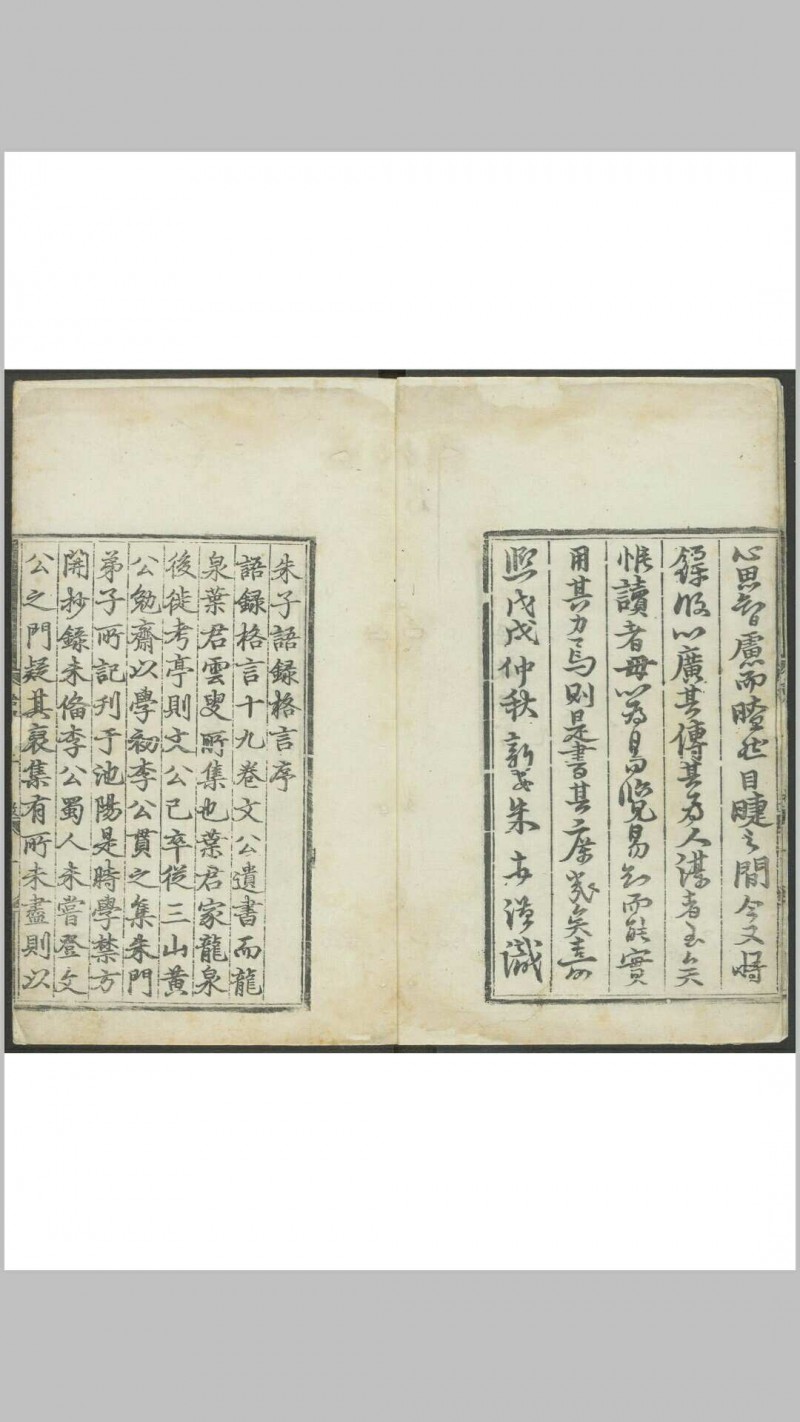 心思智慮而瞭然目睫之間今又將
鋟版以廣其傳其為人謀者至矣
惟讀者毋以為易覽易知而能實
用其力焉則是書其庶幾矣嘉
熙戊戌仲秋新安朱 識
朱子語録格言序
語録格言十九卷文公遺書而龍
泉葉君雲叟所集也葉君家龍泉
後徙考亭則文公已卒從三山黃
公勉齋以學初李公貫之集朱門
弟子所記刊于池陽是時學禁方
開抄録未偹李公蜀人未嘗登文
公之門疑其裒集有所未盡則以